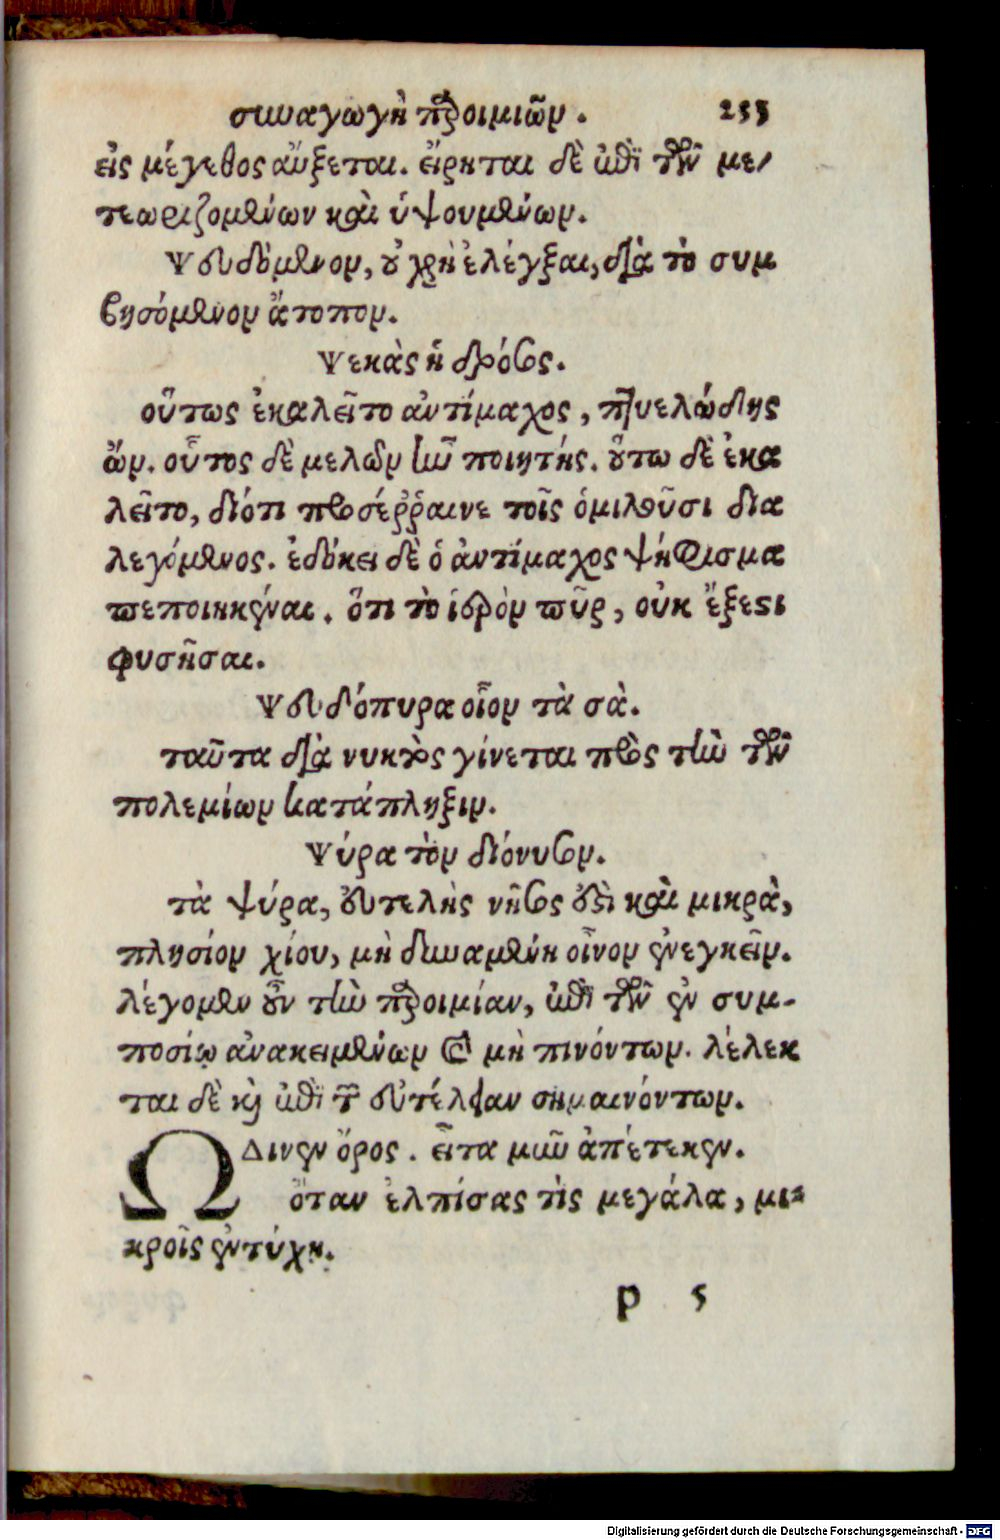 συναγωγὴ παροιμιῶν. 233
εἰς μέγεθος αὔξεται. εἴρηται δὲ ἐπὶ τῶν με-
τεωριζομένων καὶ ὑψουμένων.
Ψευδόμενον, οὐ χρὴ ἐλέγξαι, διὰ τὸ συμ
βησόμενον ἄτοπον.
Ψεκὰς ἢ δρόσος.
οὕτως ἐκαλεῖτο ἀντίμαχος, πηυελώδης
ὤν. οὗτος δὲ μελῶν ἦν ποιητής. οὕτω δὲ ἐκα
λεῖτο, διότι προσέῤῥαινε τοῖς ὁμιλοῦσι δια
λεγόμενος. ἐδόκει δὲ ὁ ἀντίμαχος ψήφισμα
πεποιηκέναι. ὅτι τὸ ἱερὸν πῦρ, οὐκ ἔξεστι
φυσῆσαι.
Ψευδόπυρα οἷον τὰ σὰ.
ταῦτα διὰ νυκτὸς γίνεται πρὸς τὴν τῶν
πολεμίων κατάπληξιν.
Ψύρα τὸν διόνυσον.
τὰ ψύρα, εὐτελὴς νῆσος ἐστὶ καὶ μικρὰ,
πλησίον χίου, μὴ δυναμένη οἶνον ἐνεγκεῖν.
λέγομεν οὖν τὴν παροιμίαν, ἐπὶ τῶν ἐν συμ-
ποσίῳ ἀνακειμένων καὶ μὴ πινόντων. λέλεκ
ται δὲ καὶ ἐπὶ τῶν εὐτέλειαν σημαινόντων.
ΩΔινεν ὄρος. εἶτα μῦν ἀπέτεκεν.
ὅταν ἐλπίσας τὶς μεγάλα, μι-
κροῖς ἐντύχῃ.
p 5
Digitalisierung gefördert durch die Deutsche Forschungsgemeinschaft - DFG